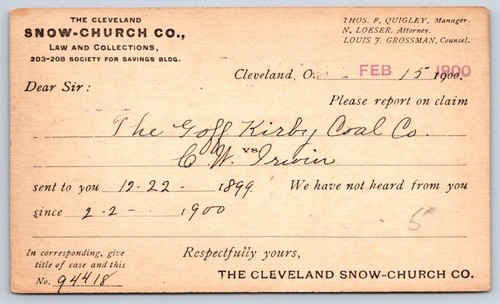 THE CLEVELAND
SNOW-CHURCH CO.,
LAW AND COLLECTIONS,
203-208 SOCIETY FOR SAVINGS BLDG.
THOS. F. QUIGLEY, Manager.
N. LOESER, Attorney.
LOUIS J. GROSSMAN, Counsel.
Cleveland, O. FEB 15 1900 1900.
Dear Sir:
Please report on claim
The Goff Kirby Coal Co.
vs
C. W. Irwin
sent to you 12-22- 1899 We have not heard from you
since 2-2- 1900
5
In corresponding, give
title of case and this
No. 94418
Respectfully yours,
THE CLEVELAND SNOW-CHURCH CO.